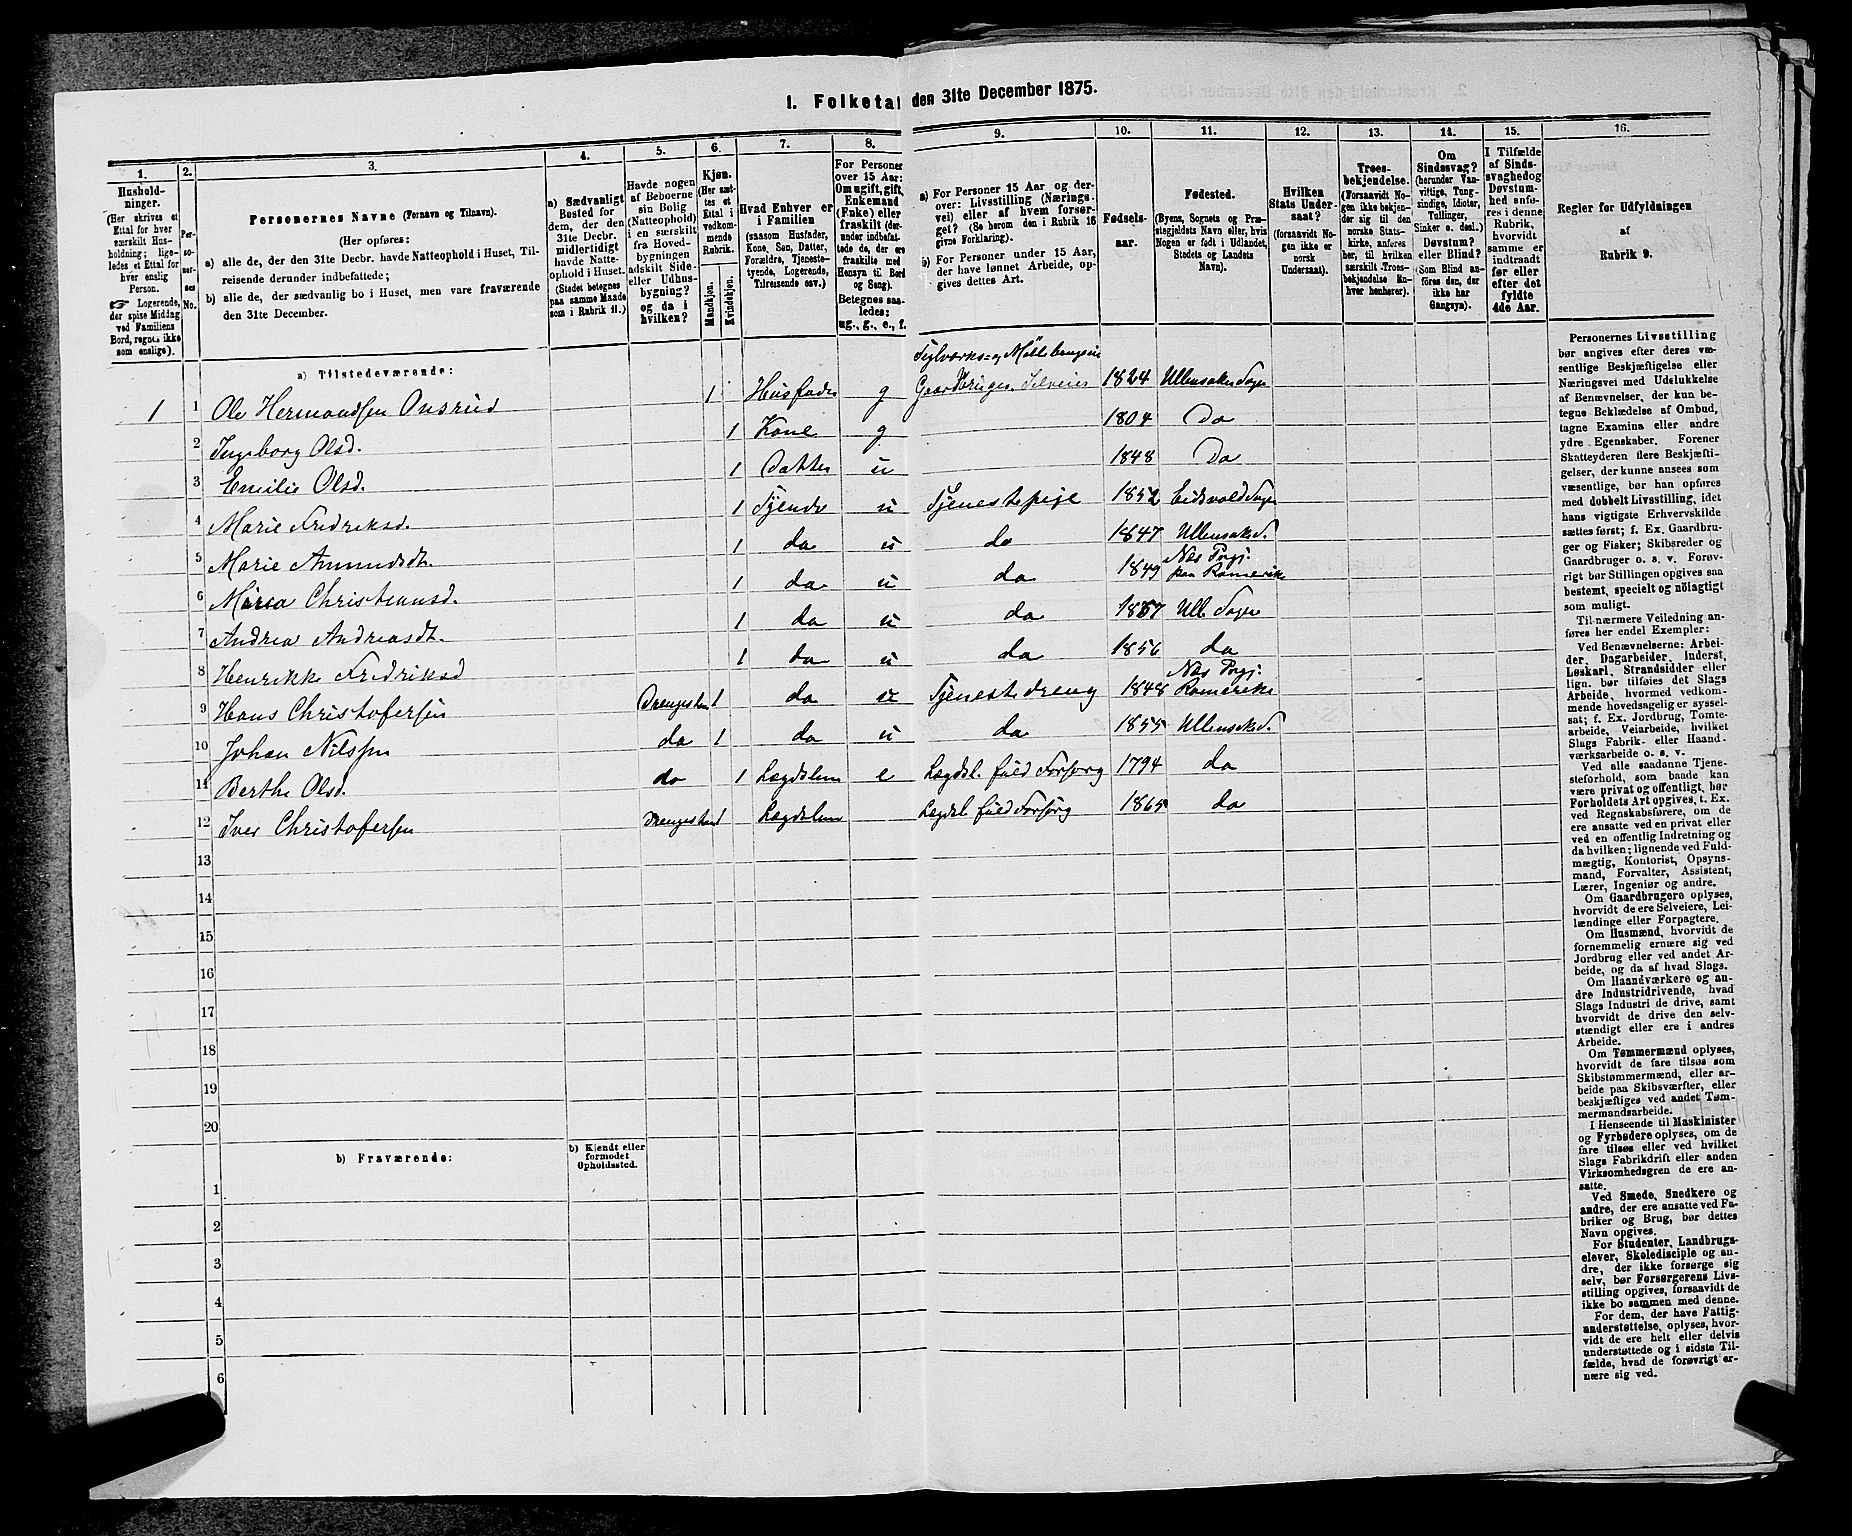 1. Folketal den 31te December 1875.
1. 2. 3. 4. 5. 6. 7. 8. 9. 10. 11. 12. 13. 14. 15. 16.
Hushold-
ninger.
(Her skrives et
Ettal for hver
særskilt Hus-
holdning; lige-
ledes et Ettal for
hver enslig
Person.
☞ Logerende,
der spise Middag
ved Familiens
Bord, regnes ikke
som enslige).
Per-
so-
ner-
nes
No.
Personernes Navne (Fornavn og Tilnavn).
(Her opføres:
a) alle de, der den 31te Decbr. havde Natteophold i Huset, Til-
reisende derunder indbefattede;
b) alle de, der sædvanlig bo i Huset, men vare fraværende
den 31te December.
a) Sædvanligt
Bosted for
dem, der den
31te Decbr.
midlertidigt
havde Natte-
ophold i Huset.
(Stedet betegnes
paa samme Maade
som i Rubrik 11.)
Havde nogen
af Beboerne
sin Bolig
(Natteophold)
i en særskilt
fra Hoved-
bygningen
adskilt Side-
eller Udhus-
bygning?
og da i
hvilken?
Kjøn.
(Her sæt-
tes et
Ettal i
vedkom-
mende
Rubrik.
Mandkjøn.
Kvindekjøn.
Hvad Enhver er
i Familien
(saasom Husfader,
Kone, Søn, Datter,
Forældre, Tjeneste-
tyende, Logerende,
Tilreisende osv.)
For Personer
over 15 Aar:
Om ugift, gift,
Enkemand
(Enke) eller
fraskilt (der-
under indbefat-
tede de, der ere
fraskilte med
Hensyn til Bord
og Seng).
Betegnes saa-
ledes:
ug., g., e., f.
a) For Personer 15 Aar og der-
over: Livsstilling (Nærings-
vei) eller af hvem forsør-
get? (Se herom den i Rubrik 16
givne Forklaring).
b) For Personer under 15 Aar,
der have lønnet Arbeide, op-
gives dettes Art.
Fødsels-
aar.
Fødested.
(Byens, Sognets og Præ-
stegjeldets Navn eller, hvis
Nogen er født i Udlandet,
Stedets og Landets
Navn).
Hvilken
Stats Under-
saat?
(forsaavidt No-
gen ikke er
norsk
Undersaat).
Troes-
bekjendelse.
(Forsaavidt No-
gen ikke bekjen-
der sig til den
norske Stats-
kirke, anføres
her, til hvilken
særskilt Troes-
bekjendelse En-
hver henhører).
Om
Sindssvag?
(herunder Van-
vittige, Tung-
sindige, Idioter,
Tullinger,
Sinker o. desl.)
Døvstum?
eller Blind?
(Som Blind an-
føres den, der
ikke har
Gangsyn).
I Tilfælde
af Sinds-
svaghed og
Døvstum-
hed anfø-
res i denne
Rubrik,
hvorvidt
samme er
indtraadt
før eller
efter det
fyldte
4de Aar.
Regler for Udfyldningen
af
Rubrik 9.
a) Tilstedeværende:
Teglværks- og Møllebruger
1 1 Ole Hermandsen Onsrud 1 Husfader g Gaardbruger, Selveier 1824 Ullensaker Sogn
2 Ingeborg Olsd. 1 Kone g 1804 Do
3 Emilie Olsd. 1 Datter u 1848 Do
4 Marie Fredriksd. 1 Tjende u Tjenestepige 1852 Eidsvold Sogn
5 Marie Amundsdt. 1 do u do 1847 Ullensaker S.
6 Maria Christiansd. 1 do u do 1849 Næs Prgj. paa Romerike
7 Andrea Andreasdt. 1 do u do 1857 Ull. Sogn
8 Henrikke Fredriksd 1 do u do 1856 do
9 Hans Christofersen Drengestuen 1 do u Tjenestedreng 1848 Næs Prgj. Romerike
10 Johan Nilsen do 1 do u do 1855 Ullensaker S.
11 Berthe Olsd. do 1 Lægdslem e Lægdsl. fuld Forsørg 1794 do
12 Iver Christofersen Drengestuen 1 Lægdslem Lægdsl fuld Forsørg 1865 do
13
14
15
16
17
18
19
20
b) Fraværende:
b) Kjendt eller
formodet
Opholdssted.
1
2
3
4
5
6
Personernes Livsstilling
bør angives efter deres væ-
sentlige Beskjæftigelse eller
Næringsvei med Udelukkelse
af Benævnelser, der kun be-
tegne Beklædelse af Ombud,
tagne Examina eller andre
ydre Egenskaber. Forener
Skatteyderen flere Beskjæfti-
gelser, der kunne ansees som
væsentlige, bør han opføres
med dobbelt Livsstilling, idet
hans vigtigste Erhvervskilde
sættes først; f. Ex. Gaardbru-
ger og Fisker; Skibsreder og
Gaardbruger o. s. v. Forøv-
rigt bør Stillingen opgives saa
bestemt, specielt og nöiagtigt
som muligt.
Til nærmere Veiledning an-
føres her endel Exempler:
Ved Benævnelserne: Arbei-
der, Dagarbeider, Inderst,
Løskarl, Strandsidder eller
lign. bør tilføies det Slags
Arbeide, hvormed vedkom-
mende hovedsagelig er syssel-
sat; f. Ex. Jordbrug, Tomte-
arbeide, Veiarbeide, hvilket
Slags Fabrik- eller Haand-
værksarbeide o. s. v.
Ved alle saadanne Tjene-
steforhold, som baade kan
være privat og offentligt, bør
Forholdets Art opgives, t. Ex.
ved Regnskabsførere, om de
ere ansatte ved en privat eller
ved en offentlig Indretning og
da hvilken; lignende ved Fuld-
mægtig, Kontorist, Opsyns-
mand, Forvalter, Assistent,
Lærer, Ingeniør og andre.
Om Gaardbrugere oplyses,
hvorvidt de ere Selveiere, Lei-
lændinge eller Forpagtere.
Om Husmænd, hvorvidt de
fornemmelig ernære sig ved
Jordbrug eller ved andet Ar-
beide, og da af hvad Slags.
Om Haandværkere og an-
dre Industridrivende, hvad
Slags Industri de drive, samt
hvorvidt de drive den selv-
stændigt eller ere i andres
Arbeide.
Om Tømmermænd oplyses,
hvorvidt de fare tilsøs som
Skibstømmermænd, eller ar-
beide paa Skibsværfter, eller
beskjæftiges ved andet Tøm-
mermandsarbeide.
I Henseende til Maskinister
og Fyrbødere oplyses, om de
fare tilsøs eller ved hvilket
Slags Fabrikdrift eller anden
Virksomhedsgren de ere an-
satte.
Ved Smede, Snedkere og
andre, der ere ansatte ved Fa-
briker og Brug, bør dettes
Navn opgives.
For Studenter, Landbrugs-
elever, Skoledisciple og an-
dre, der ikke forsørge sig
selv, bør Forsørgerens Livs-
stilling opgives, forsaavidt de
ikke bo sammen med denne.
For dem, der have Fattig-
understøttelse, oplyses, hvor-
vidt de ere helt eller delvis
understøttede og i sidste Til-
fælde, hvad de forøvrigt er-
nære sig ved.